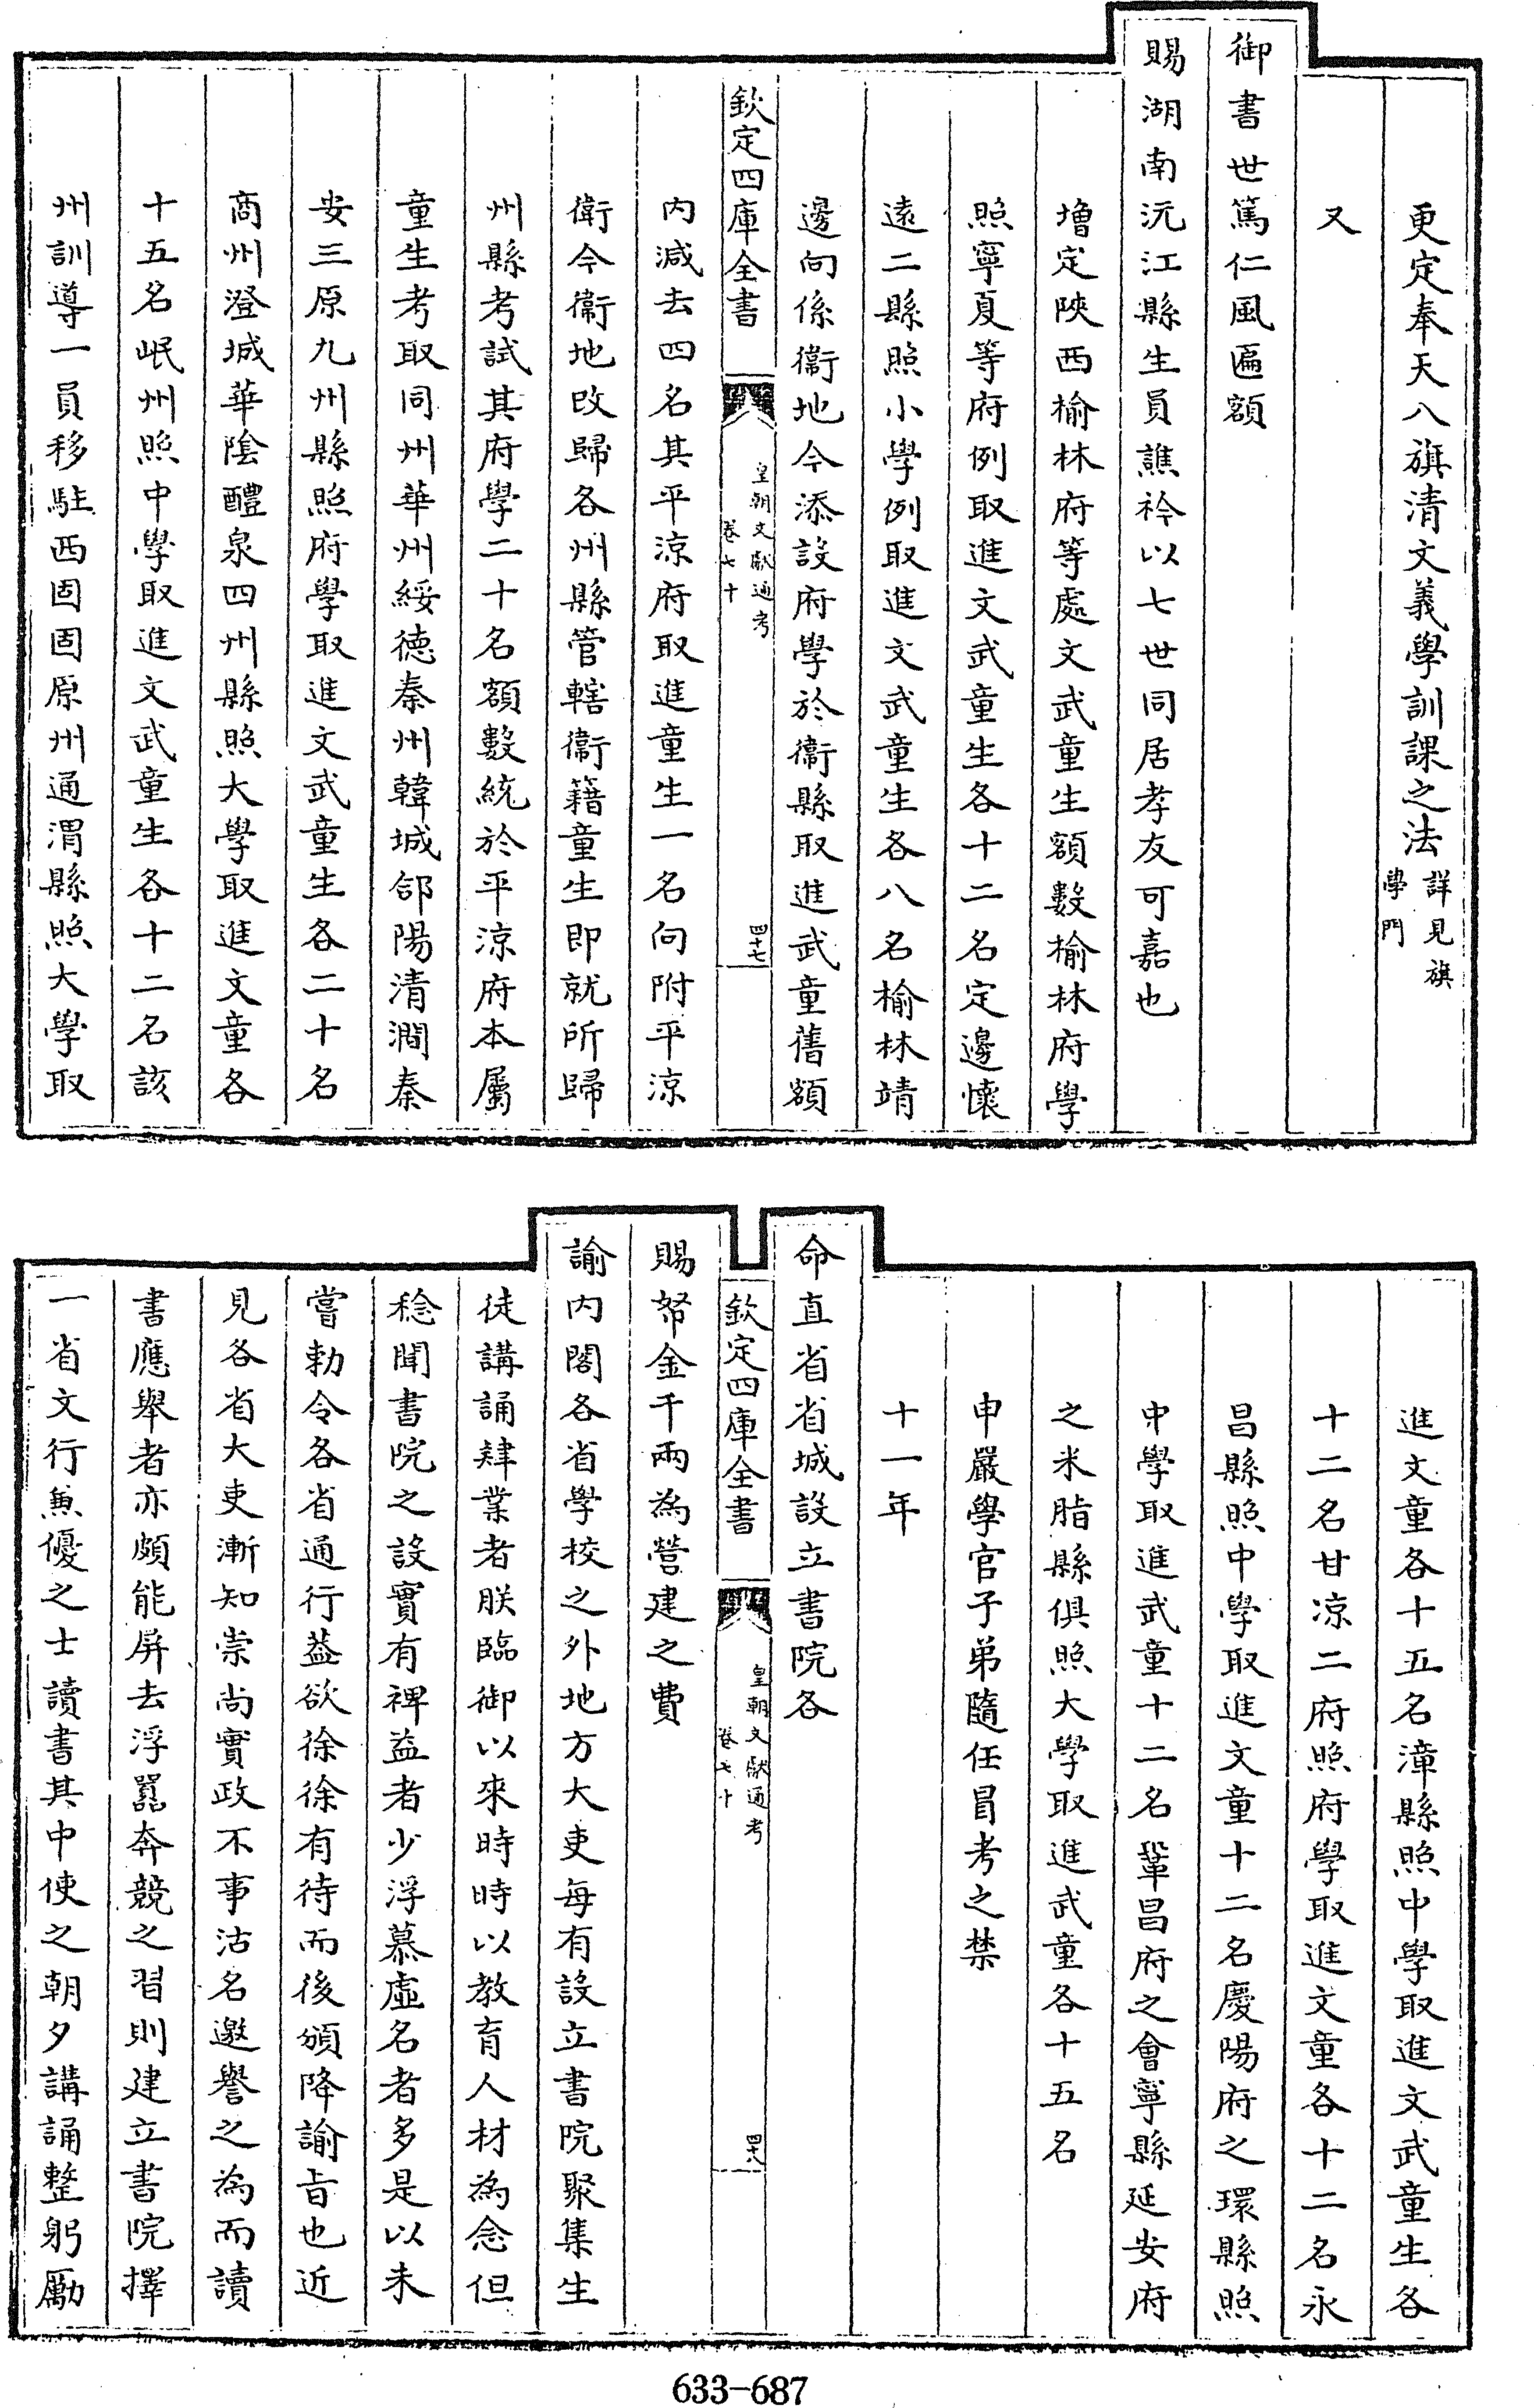 更定奉天八旗清文義學訓課之法詳見旗學門
又
御書世篤仁風匾額
賜湖南沅江縣生員譙衿以七世同居孝友可嘉也
増定陜西榆林府等處文武童生額數榆林府學
照寧夏等府例取進文武童生各十二名定邊懷
遠二縣照小學例取進文武童生各八名榆林靖
邊向係衞地今添設府學於衞縣取進武童舊額
欽定四庫全書
皇朝文獻通考
卷七十
四十七
内減去四名其平涼府取進童生一名向附平涼
衞今衞地改歸各州縣管轄衞籍童生即就所歸
州縣考試其府學二十名額數統於平涼府本屬
童生考取同州華州綏德秦州韓城郃陽清澗秦
安三原九州縣照府學取進文武童生各二十名
商州澄城華隂醴泉四州縣照大學取進文童各
十五名岷州照中學取進文武童生各十二名該
州訓導一員移駐西固固原州通渭縣照大學取
進文童各十五名漳縣照中學取進文武童生各
十二名甘凉二府照府學取進文童各十二名永
昌縣照中學取進文童十二名慶陽府之環縣照
中學取進武童十二名鞏昌府之會寧縣延安府
之米脂縣俱照大學取進武童各十五名
申嚴學官子弟隨任冒考之禁
十一年
命直省省城設立書院各
欽定四庫全書
皇朝文獻通考
卷七十
四十八
賜帑金千兩為營建之費
諭内閣各省學校之外地方大吏每有設立書院聚集生
徒講誦肄業者朕臨御以來時時以教育人材為念但
稔聞書院之設實有裨益者少浮慕虛名者多是以未
嘗勅令各省通行葢欲徐徐有待而後頒降諭旨也近
見各省大吏漸知崇尚實政不事沽名邀譽之為而讀
書應舉者亦頗能屏去浮囂奔競之習則建立書院擇
一省文行兼優之士讀書其中使之朝夕講誦整躬勵
633-687